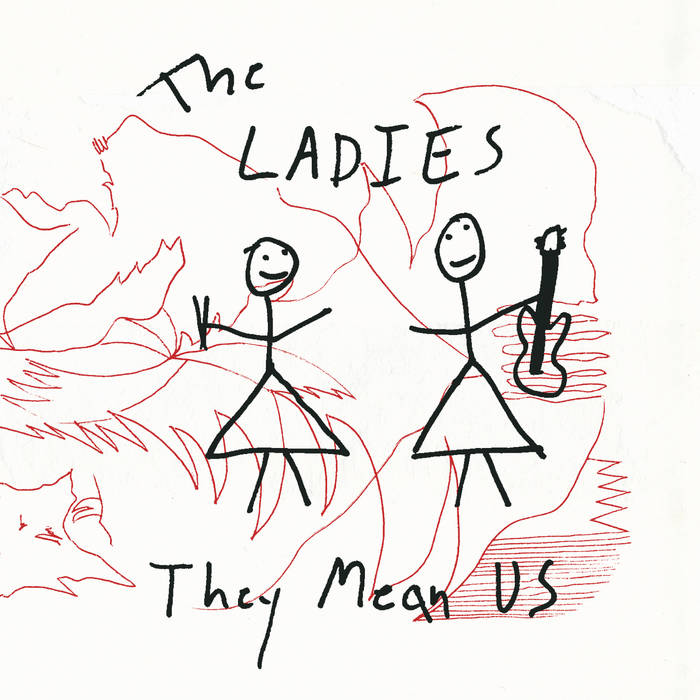 The
LADIES
They Mean US